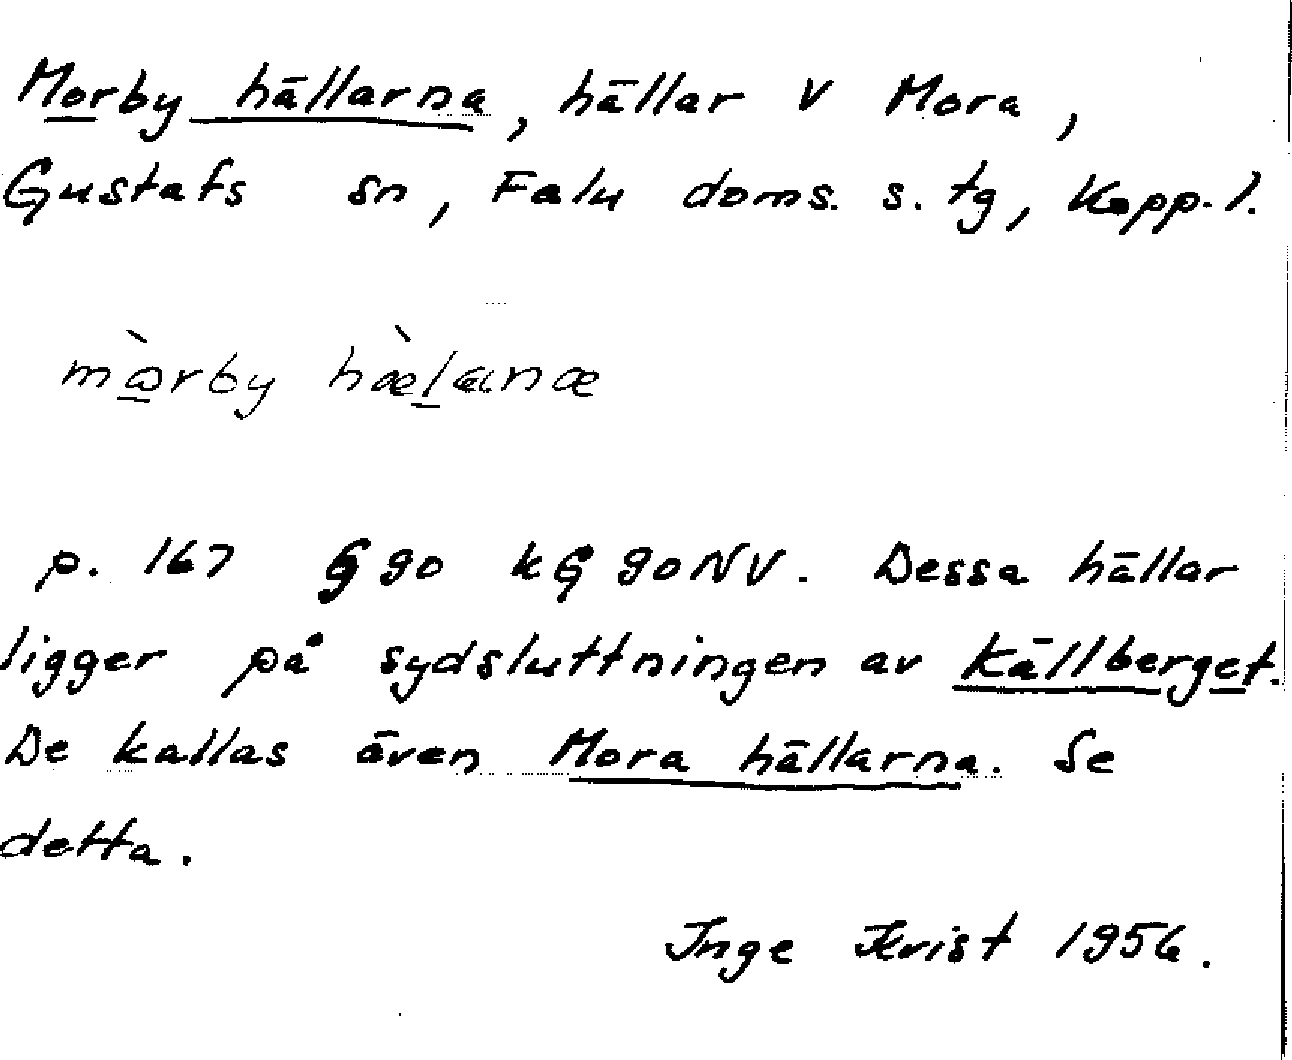 Morby hällarna, hällar V Mora,
Gustafs sn, Falu doms. s. tg, Kopp. l.
mòrby hæ̀lanæ
p. 167 G 90 kG 90 NV. Dessa hällar
ligger på sydsluttningen av Källberget.
De kallas även Mora hällarna. Se
detta.
Inge Kvist 1956.